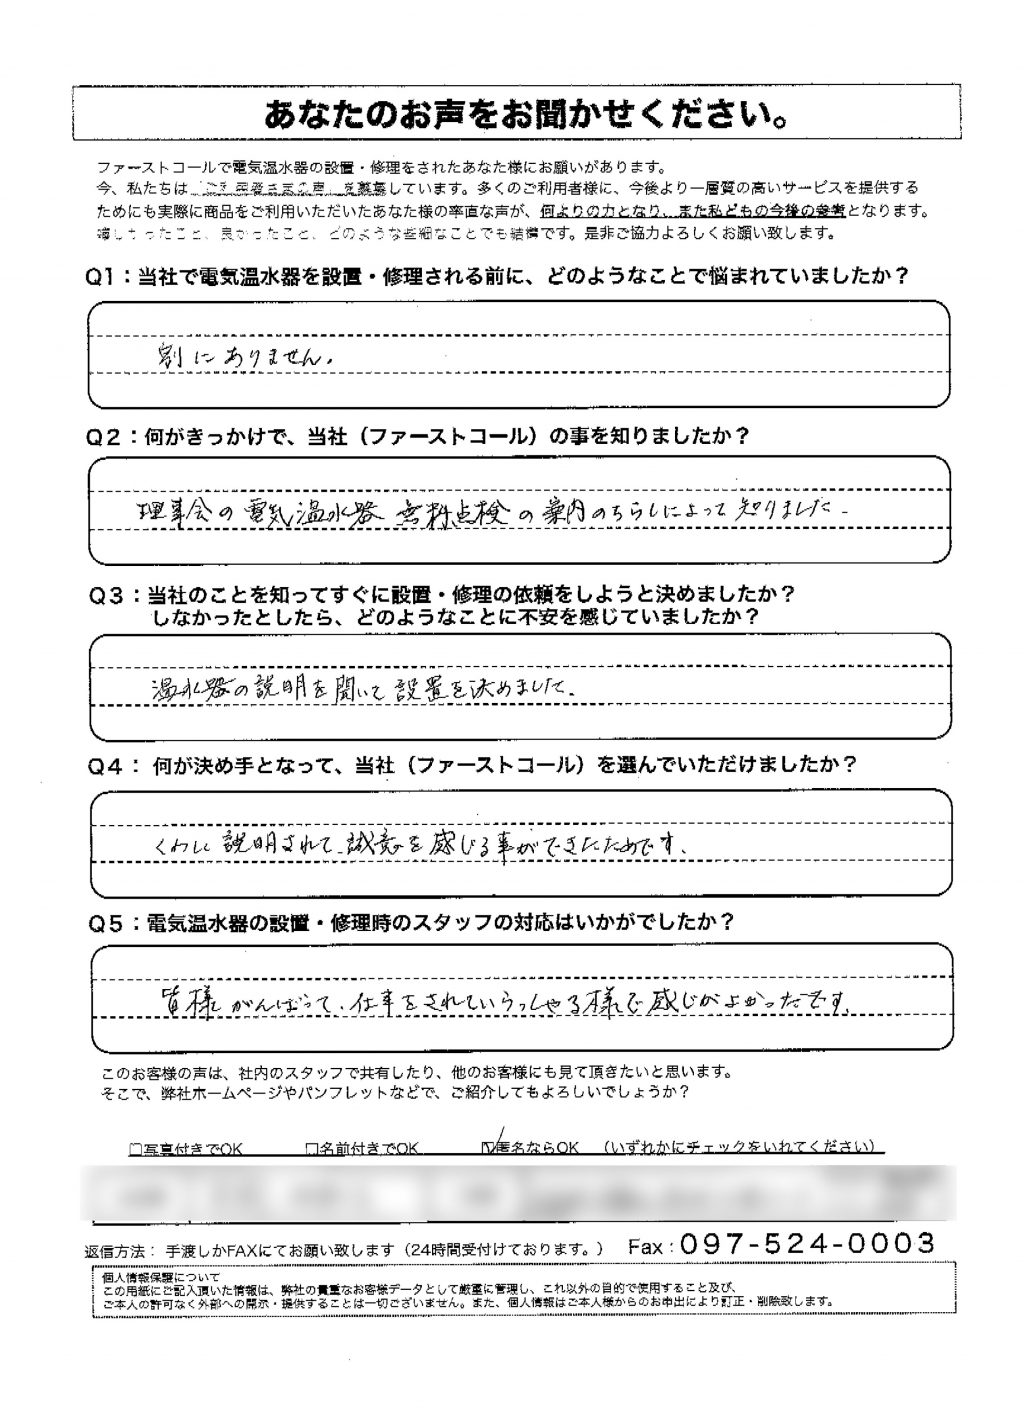 あなたのお声をお聞かせください。
ファーストコールで電気温水器の設置・修理をされたあなた様にお願いがあります。
今、私たちは「ご利用者さまの声」を募集しています。多くのご利用者様に、今後より一層質の高いサービスを提供する
ためにも実際に商品をご利用いただいたあなた様の率直な声が、何よりの力となり、また私どもの今後の参考となります。
嬉しかったこと、良かったこと、どのような些細なことでも結構です。是非ご協力よろしくお願い致します。
Q1：当社で電気温水器を設置・修理される前に、どのようなことで悩まれていましたか？
割にありません。
Q2：何がきっかけで、当社（ファーストコール）の事を知りましたか？
理事会の電気温水器 無料点検の案内のちらしによって知りました。
Q3：当社のことを知ってすぐに設置・修理の依頼をしようと決めましたか？
しなかったとしたら、どのようなことに不安を感じていましたか？
温水器の説明を聞いて設置を決めました。
Q4： 何が決め手となって、当社（ファーストコール）を選んでいただけましたか？
くわしく説明されて、誠意を感じる事ができたためです。
Q5：電気温水器の設置・修理時のスタッフの対応はいかがでしたか？
皆様がんばって、仕事をされていらっしゃる様で感じがよかったです。
このお客様の声は、社内のスタッフで共有したり、他のお客様にも見て頂きたいと思います。
そこで、弊社ホームページやパンフレットなどで、ご紹介してもよろしいでしょうか？
□写真付きでOK □名前付きでOK ☑匿名ならOK （いずれかにチェックをいれてください）
返信方法： 手渡しかFAXにてお願い致します（24時間受付けております。） Fax：097-524-0003
個人情報保護について
この用紙にご記入頂いた情報は、弊社の貴重なお客様データとして厳重に管理し、これ以外の目的で使用すること及び、
ご本人の許可なく外部への開示・提供することは一切ございません。また、個人情報はご本人様からのお申出により訂正・削除致します。